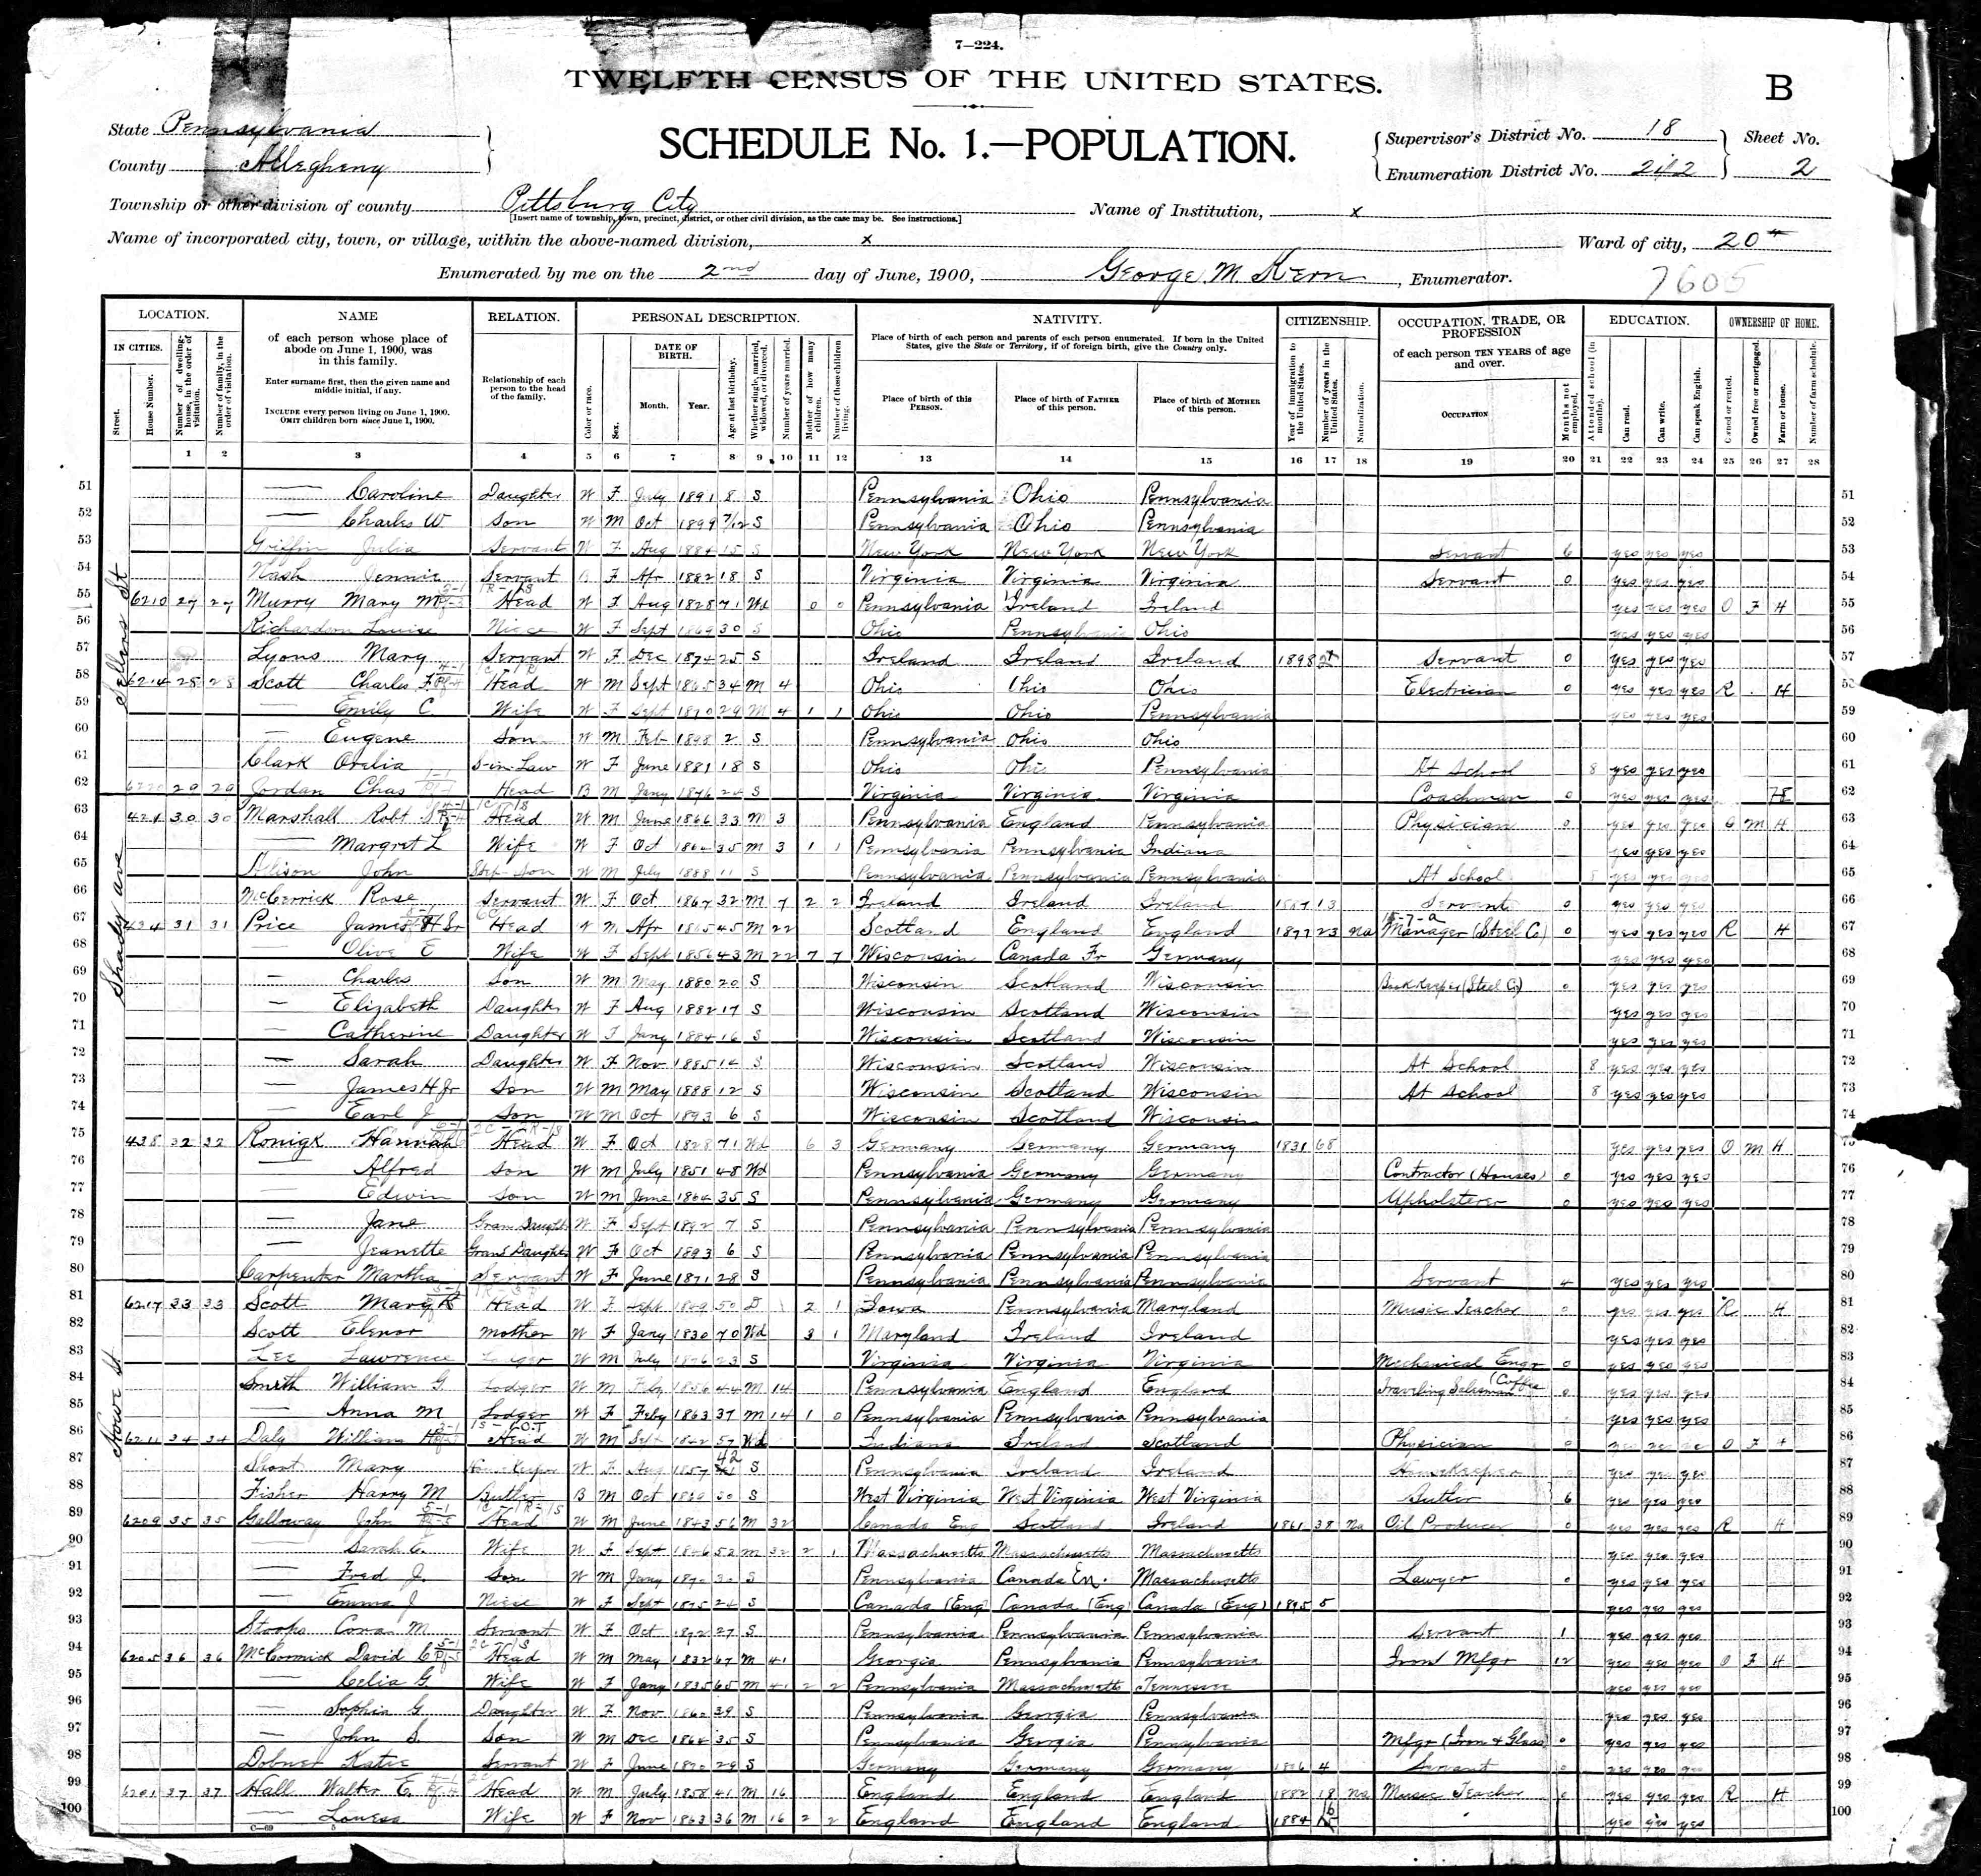 7—224.
TWELFTH CENSUS OF THE UNITED STATES.
B
State Pennsylvania
County Allegheny
SCHEDULE No. 1.—POPULATION.
Supervisor's District No. 18
Enumeration District No. 242
Sheet No. 2
Township or other division of county Pittsburg City
[Insert name of township, town, precinct, district, or other civil division, as the case may be. See instructions.]
Name of Institution, x
Name of incorporated city, town, or village, within the above-named division, x
Ward of city, 20th
Enumerated by me on the 2nd day of June, 1900, George M. Kern, Enumerator.
7605
LOCATION. NAME RELATION. PERSONAL DESCRIPTION. NATIVITY. CITIZENSHIP. OCCUPATION, TRADE, OR PROFESSION EDUCATION. OWNERSHIP OF HOME.
IN CITIES. Street. House Number. Number of dwelling-house, in the order of visitation. Number of family, in the order of visitation.
of each person whose place of abode on June 1, 1900, was in this family.
Enter surname first, then the given name and middle initial, if any.
INCLUDE every person living on June 1, 1900. OMIT children born since June 1, 1900.
Relationship of each person to the head of the family.
Color or race. Sex. DATE OF BIRTH. Month. Year. Age at last birthday. Whether single, married, widowed, or divorced. Number of years married. Mother of how many children. Number of these children living.
Place of birth of each person and parents of each person enumerated. If born in the United States, give the State or Territory; if of foreign birth, give the Country only.
Place of birth of this PERSON. Place of birth of FATHER of this person. Place of birth of MOTHER of this person.
Year of immigration to the United States. Number of years in the United States. Naturalization.
of each person TEN YEARS of age and over.
OCCUPATION Months not employed.
Attended school (in months). Can read. Can write. Can speak English.
Owned or rented. Owned free or mortgaged. Farm or house. Number of farm schedule.
1 2 3 4 5 6 7 8 9 10 11 12 13 14 15 16 17 18 19 20 21 22 23 24 25 26 27 28
Sellers St
51 — Caroline Daughter W F July 1891 8 S Pennsylvania Ohio Pennsylvania 51
52 — Charles W Son W M Oct 1899 7/12 S Pennsylvania Ohio Pennsylvania 52
53 Griffin Julia Servant W F Aug 1884 15 S New York New York New York Servant 6 yes yes yes 53
54 Nash Jennie Servant B F Apr 1882 18 S Virginia Virginia Virginia Servant 0 yes yes yes 54
55 6210 27 27 Murry Mary M Head W F Aug 1828 71 Wd 0 0 Pennsylvania Ireland Ireland yes yes yes O F H 55
56 Richardson Louise Niece W F Sept 1869 30 S Ohio Pennsylvania Ohio yes yes yes 56
57 Lyons Mary Servant W F Dec 1874 25 S Ireland Ireland Ireland 1898 Servant 0 yes yes yes 57
58 6214 28 28 Scott Charles F. Head W M Sept 1865 34 M 4 Ohio Ohio Ohio Electrician 0 yes yes yes R H
59 — Emily C. Wife W F Sept 1870 29 M 4 1 1 Ohio Ohio Pennsylvania yes yes yes 59
60 — Eugene Son W M Feb 1898 2 S Pennsylvania Ohio Ohio 60
61 Clark Orelia S-in-Law W F June 1881 18 S Ohio Ohio Pennsylvania At School 8 yes yes yes 61
62 29 29 Jordan Chas Head B M Jany 1876 24 S Virginia Virginia Virginia Coachman 0 yes yes yes 62
Shady ave
63 421 30 30 Marshall Robt Head W M June 1866 33 M 3 Pennsylvania England Pennsylvania Physician 0 yes yes yes O M H 63
64 — Margret L Wife W F Oct 1864 35 M 3 1 1 Pennsylvania Pennsylvania Indiana yes yes yes 64
65 John Step-Son W M July 1888 11 S Pennsylvania Pennsylvania Pennsylvania At School 8 yes yes yes 65
66 McGerrick Rose Servant W F Oct 1867 32 M 7 2 2 Ireland Ireland Ireland 1887 13 Servant 0 yes yes yes 66
67 434 31 31 Price James H Sr Head W M Apr 45 M 22 Scotland England England 1877 23 Na Manager (Steel Co) 0 yes yes yes R H 67
68 Olive E Wife W F Sept 1856 43 M 22 7 7 Wisconsin Canada Fr Germany yes yes yes 68
69 — Charles Son W M May 1880 20 S Wisconsin Scotland Wisconsin Bookkeeper (Steel Co) 0 yes yes yes 69
70 — Elizabeth Daughter W F Aug 1882 17 S Wisconsin Scotland Wisconsin yes yes yes 70
71 — Catherine Daughter W F Jany 1884 16 S Wisconsin Scotland Wisconsin yes yes yes 71
72 — Sarah Daughter W F Nov 1885 14 S Wisconsin Scotland Wisconsin At School 8 yes yes yes 72
73 — James H Jr Son W M May 1888 12 S Wisconsin Scotland Wisconsin At School 8 yes yes yes 73
74 — Earl J Son W M Oct 1893 6 S Wisconsin Scotland Wisconsin 74
75 438 32 32 Ronigk Hannah Head W F Oct 1828 71 Wd 6 3 Germany Germany Germany 1831 68 yes yes yes O M H 75
76 — Alfred Son W M July 1851 48 Wd Pennsylvania Germany Germany Contractor (Houses) 0 yes yes yes 76
77 — Edwin Son W M June 1864 35 S Pennsylvania Germany Germany Upholsterer 0 yes yes yes 77
78 — Jane Gran Daught W F Sept 1892 7 S Pennsylvania Pennsylvania Pennsylvania 78
79 — Jeanette Grand Daughter W F Oct 1893 6 S Pennsylvania Pennsylvania Pennsylvania 79
80 Carpenter Martha Servant W F June 1871 28 S Pennsylvania Pennsylvania Pennsylvania Servant 4 yes yes yes 80
Howe St
81 6217 33 33 Scott Mary K Head W F Sept 1849 50 D 2 1 Iowa Pennsylvania Maryland Music Teacher 0 yes yes yes R H 81
82 Scott Elenor Mother W F Jany 1830 70 Wd 3 1 Maryland Ireland Ireland yes yes yes 82
83 Lee Lawrence Lodger W M July 1876 23 S Virginia Virginia Virginia Mechanical Engr 0 yes yes yes 83
84 Smith William G. Lodger W M Feby 1856 44 M 14 Pennsylvania England England Traveling Salesman (Coffee 0 yes yes yes 84
85 — Anna M Lodger W F Feby 1863 37 M 14 1 0 Pennsylvania Pennsylvania Pennsylvania yes yes yes 85
86 6211 34 34 Daly William H Head W M Sept 1842 57 Wd Indiana Ireland Scotland Physician 0 yes yes yes O F H 86
87 Short Mary HouseKeeper W F Aug 1857 42 S Pennsylvania Ireland Ireland HouseKeeper yes yes yes 87
88 Fisher Harry M Butler B M Oct 1869 30 S West Virginia West Virginia West Virginia Butler 6 yes yes yes 88
89 6209 35 35 Galloway John Head W M June 1843 56 M 32 Canada Eng Scotland Ireland 1861 38 Na Oil Producer 0 yes yes yes R H 89
90 — Sarah E. Wife W F Sept 1846 53 M 32 2 1 Massachusetts Massachusetts Massachusetts yes yes yes 90
91 — Fred J. Son W M Jany 1870 30 S Pennsylvania Canada En. Massachusetts Lawyer 0 yes yes yes 91
92 — Emma J Niece W F Sept 1875 24 S Canada (Eng) Canada (Eng) Canada (Eng) 1895 5 yes yes yes 92
93 Stoops Cora M Servant W F Oct 1872 27 S Pennsylvania Pennsylvania Pennsylvania Servant 1 yes yes yes 93
94 6205 36 36 McCormick David C Head W M May 1832 67 M 41 Georgia Pennsylvania Pennsylvania Iron Mfgr 12 yes yes yes O F H 94
95 — Celia G Wife W F Jany 1835 65 M 41 2 2 Pennsylvania Massachusetts Tennessee yes yes yes 95
96 — Sophia G. Daughter W F Nov 1860 39 S Pennsylvania Georgia Pennsylvania yes yes yes 96
97 — John S. Son W M Dec 1864 35 S Pennsylvania Georgia Pennsylvania Mfgr (Iron & Glass) 0 yes yes yes 97
98 Dobner Katie Servant W F June 1870 29 S Germany Germany Germany 1896 4 Servant 0 yes yes yes 98
99 6201 37 37 Hall Walter E. Head W M July 1858 41 M 16 England England England 1882 18 Na Music Teacher 0 yes yes yes R H 99
100 — Louesa Wife W F Nov 1863 36 M 16 2 2 England England England 1884 yes yes yes 100